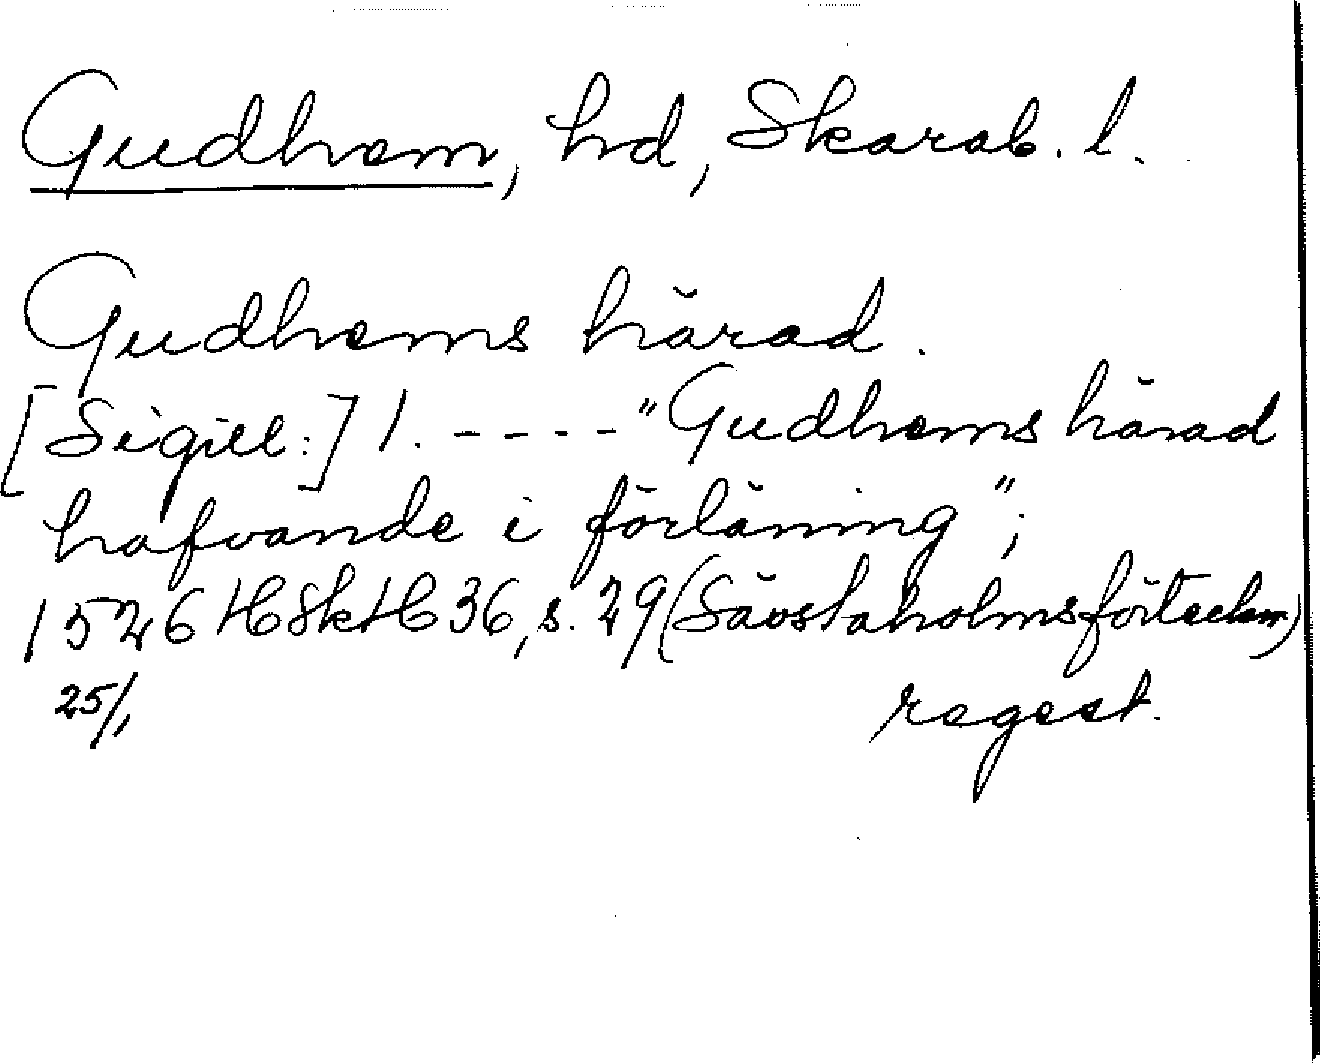 Gudhem, hd, Skarab. l.
Gudhems härad.
[Sigill:] 1. ---- "Gudhems härad
hafvande i förläning";
1526 HSkH 36, s. 29 (Sävstaholmsförteckn.)
25/1 regest.